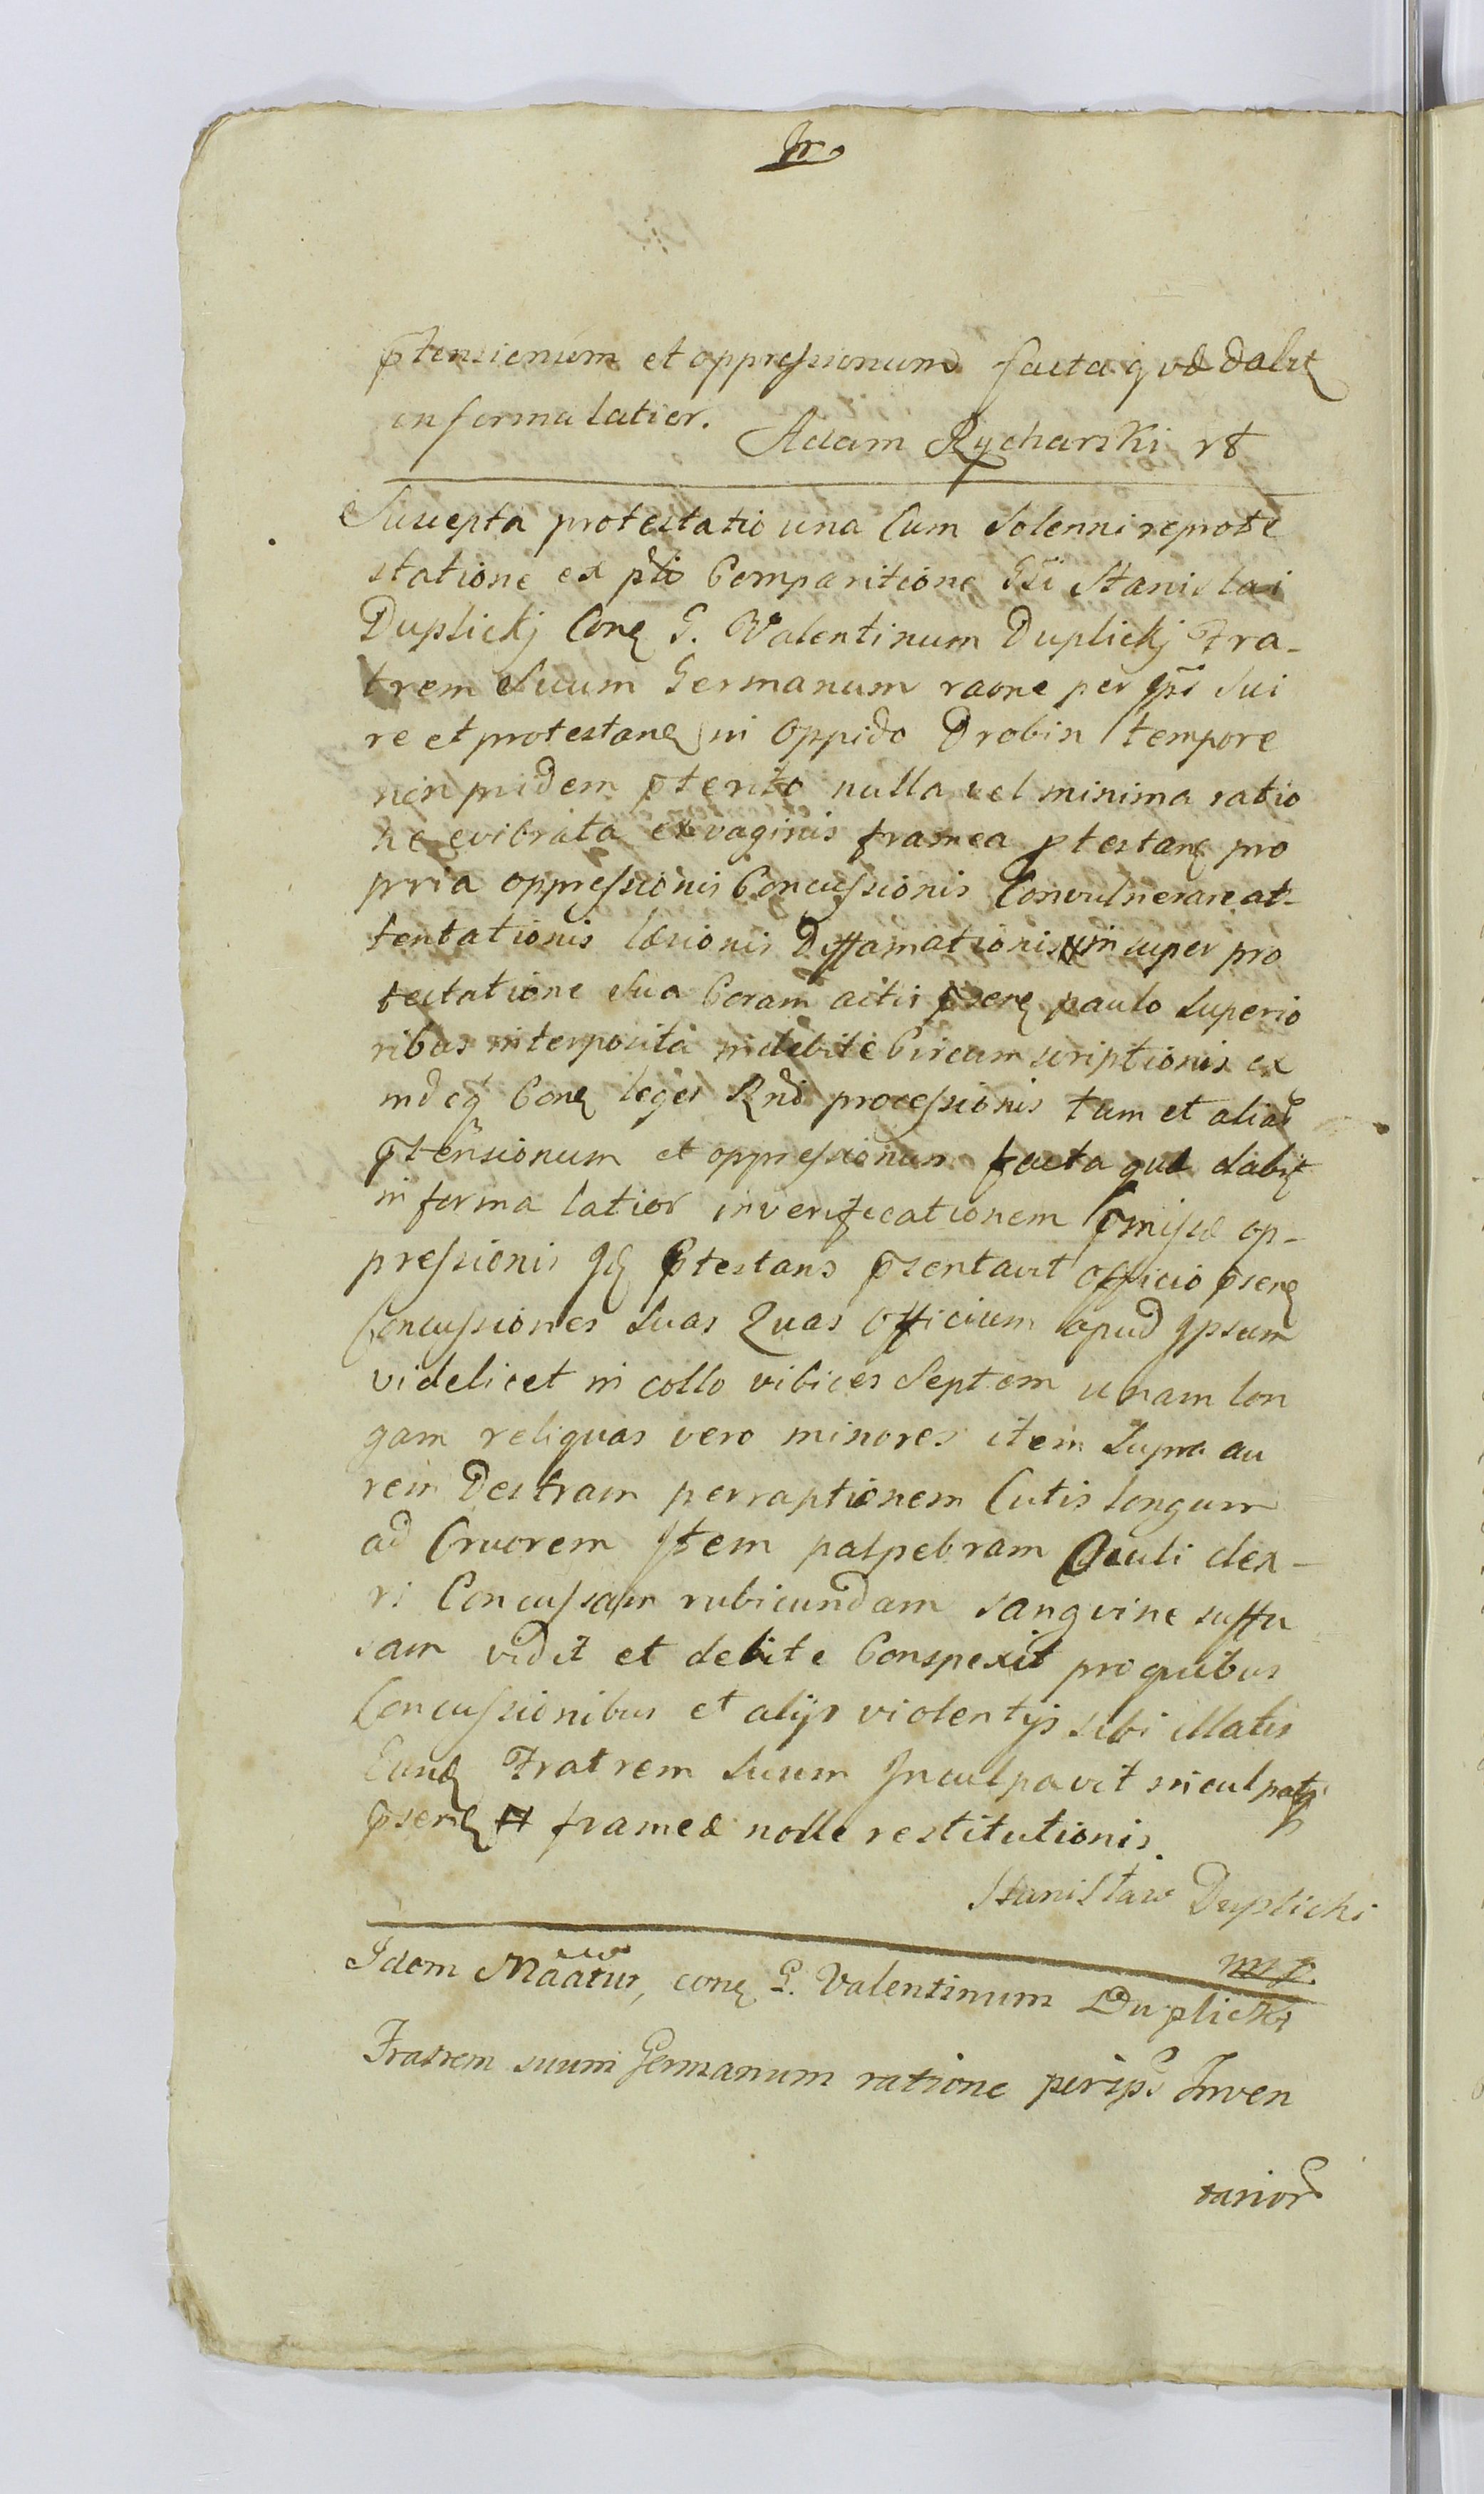 Fr.
ptensionum et oppressionum facta quæ dabit
in forma latior. Adam Rycharski
Suscepta protestatio una Cum Solenni reprote
statione ex Comparitione Gsi Stanislai
Duplickj Cong G. Valentinum Duplickj Fra-
trem Suum Germanum raone per Sui
re et protestang in Oppido Drobin tempore
non pridem pterito nulla vel minima ratio
ne evibrata ex vaginis framea ptestang pro
pria oppressionis Concussionis Convulnerare at-
tentationis læsionis Diffamationis in super pro
testatione Sua Coram actis pseng paulo Superio
ribus interposita indebite Circum scriptionis ex
indeq Cong leges Rnd processionis tum et aliar
ptensionum et oppressionum facta quæ dabit
in forma latior in verificationem pmissæ op-
pressionis Ptestans psentavit Officio pseng
Concussiones Suas Quas Officium apud Ipsum
videlicet in collo vibices Septem unam lon
gam reliquas vero minores item Supra au
rem Dextram perraptionem Cutis longum
ad Cruorem Item palpebram Oculi dex-
ri Concussam rubicundam sangvine suffu
sam vidit et debite Conspexit pro quibus
Concussionibus et alijs violentijs sibi illatis
Eund Fratrem Suum Inculpavit inculpatq
pseng frameæ nolle restitutionis.
Stanisław Duplicki
mp.
Idem cong G. Valentinum Duplicki
Fratrem suum Germanum ratione per ips Inven
tarior